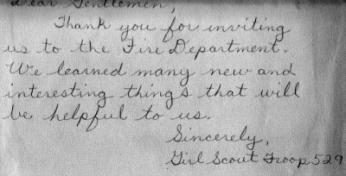 Dear Gentlemen,
Thank you for inviting
us to the Fire Department.
We learned many new and
interesting things that will
be helpful to us.
Sincerely,
Girl Scout Troop 529